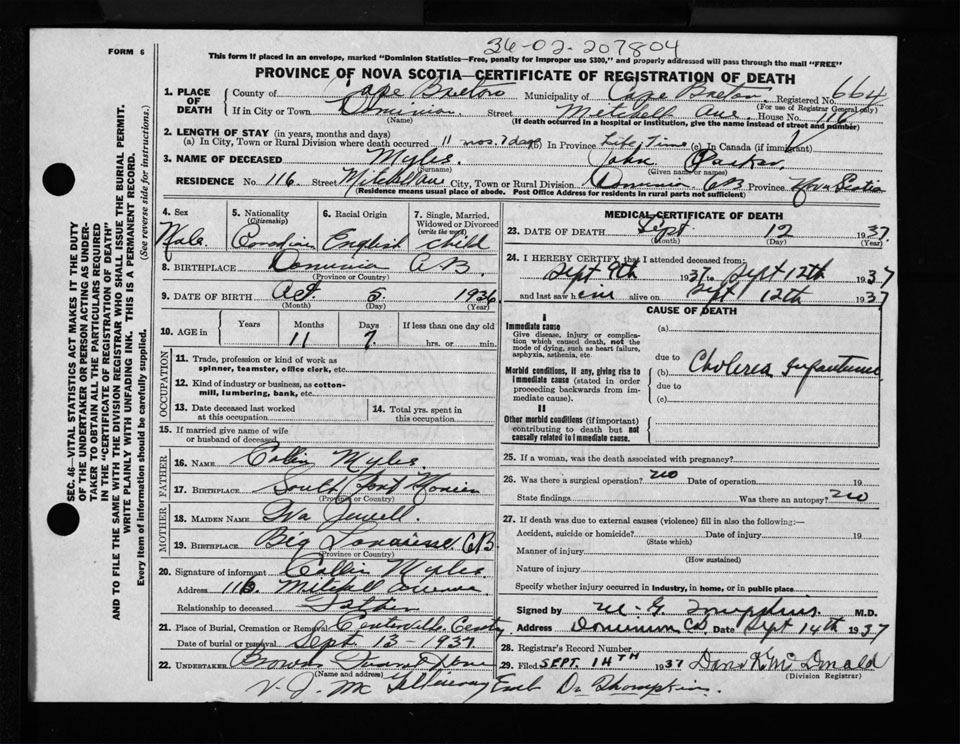 36-02-207804
FORM 6
This form if placed in an envelope, marked "Dominion Statistics—Free, penalty for improper use $300," and properly addressed will pass through the mail "FREE"
PROVINCE OF NOVA SCOTIA—CERTIFICATE OF REGISTRATION OF DEATH
SEC. 46—VITAL STATISTICS ACT MAKES IT THE DUTY
OF THE UNDERTAKER OR PERSON ACTING AS UNDER-
TAKER TO OBTAIN ALL THE PARTICULARS REQUIRED
IN THE "CERTIFICATE OF REGISTRATION OF DEATH"
AND TO FILE THE SAME WITH THE DIVISION REGISTRAR WHO SHALL ISSUE THE BURIAL PERMIT.
WRITE PLAINLY WITH UNFADING INK. THIS IS A PERMANENT RECORD.
Every item of information should be carefully supplied. (See reverse side for instructions.)
1. PLACE OF DEATH County of Cape Breton Municipality of Cape Breton Registered No. 664
(For use of Registrar General only)
If in City or Town Dominion Street Mitchell Ave House No. 116
(Name) (If death occurred in a hospital or institution, give the name instead of street and number)
2. LENGTH OF STAY (in years, months and days)
(a) In City, Town or Rural Division where death occurred 11 mos. 7 days In Province Life Time (c) In Canada (if immigrant)
3. NAME OF DECEASED Myles John Parker
(Surname) (Given name or names)
RESIDENCE No. 116 Street Mitchell Ave City, Town or Rural Division Dominion CB Province Nova Scotia
(Residence means usual place of abode. Post Office Address for residents in rural parts not sufficient)
4. Sex Male
5. Nationality (Citizenship) Canadian
6. Racial Origin English
7. Single, Married, Widowed or Divorced (write the word) Child
8. BIRTHPLACE Dominion C.B.
(Province or Country)
9. DATE OF BIRTH Oct. 5 1936
(Month) (Day) (Year)
10. AGE in Years Months 11 Days 7 If less than one day old hrs. or min.
OCCUPATION
11. Trade, profession or kind of work as
spinner, teamster, office clerk, etc.
12. Kind of industry or business, as cotton-
mill, lumbering, bank, etc.
13. Date deceased last worked
at this occupation
14. Total yrs. spent in
this occupation
15. If married give name of wife
or husband of deceased
FATHER
16. NAME Collin Myles
17. BIRTHPLACE South
(Province or Country)
MOTHER
18. MAIDEN NAME Iva Jewell
19. BIRTHPLACE Big CB
(Province or Country)
20. Signature of informant Collin Myles
Address 116 Mitchell Avenue
Relationship to deceased Father
21. Place of Burial, Cremation or Removal Centerville
Date of burial or removal Sept 13 - 1937
22. UNDERTAKER Brown
(Name and address)
V. J. Mc Gillivray
MEDICAL CERTIFICATE OF DEATH
23. DATE OF DEATH Sept 12 1937
(Month) (Day) (Year)
24. I HEREBY CERTIFY that I attended deceased from:
Sept 9th 1937 to Sept 12th 1937
and last saw him alive on Sept 12th 1937
CAUSE OF DEATH
I
Immediate cause
Give disease, injury or complica-
tion which caused death, not the
mode of dying, such as heart failure,
asphyxia, asthenia, etc.
(a)
due to
Morbid conditions, if any, giving rise to
immediate cause (stated in order
proceeding backwards from im-
mediate cause).
(b) Cholera Infantum
due to
(c)
II
Other morbid conditions (if important)
contributing to death but not
causally related to immediate cause.
25. If a woman, was the death associated with pregnancy?
26. Was there a surgical operation? no Date of operation 19
State findings Was there an autopsy? no
27. If death was due to external causes (violence) fill in also the following:—
Accident, suicide or homicide? Date of injury 19
(State which)
Manner of injury
(How sustained)
Nature of injury
Specify whether injury occurred in industry, in home, or in public place
Signed by M. G. Tompkins M.D.
Address Dominion CB Date Sept 14th 1937
28. Registrar's Record Number
29. Filed SEPT. 14TH 1937 Dan K McDonald
(Division Registrar)